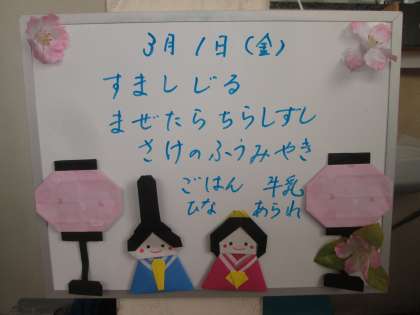 3月1日(金)
すましじる
まぜたらちらしずし
さけのふうみやき
ごはん 牛乳
ひな あられ